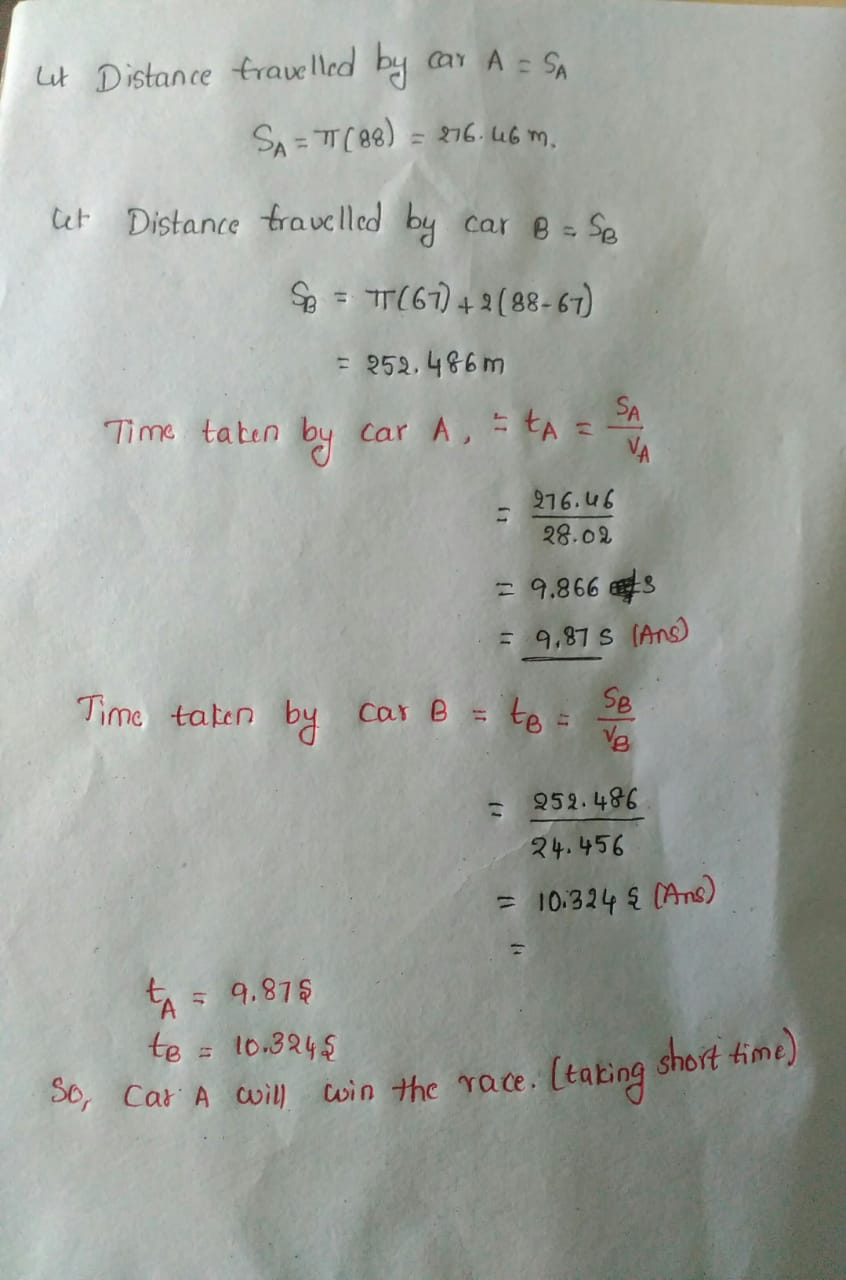 Let Distance travelled by car A = S_A
S_A = π(88) = 276.46 m.
Let Distance travelled by car B = S_B
S_B = π(67) + 2(88-67)
= 252.486 m
Time taken by car A, = t_A = S_A / V_A
= 276.46 / 28.02
= 9.866 s
= 9.87 s (Ans)
Time taken by car B = t_B = S_B / V_B
= 252.486 / 24.456
= 10.324 s (Ans)
=
t_A = 9.87 s
t_B = 10.324 s
So, Car A will win the race. (taking short time)